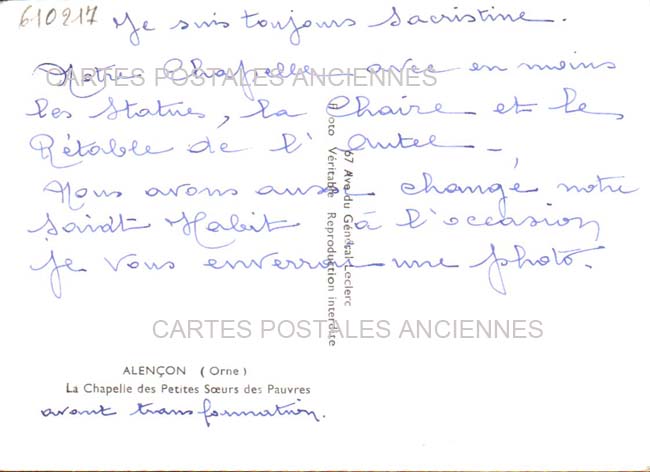 610217
Je suis toujours Sacristine.
Notre Chapelle - avec en moins
les Statues, la Chaire et le
Rétable de l'Autel -
Nous avons aussi changé notre
saint Habit à l'occasion
je vous enverrai une photo.
CARTES POSTALES ANCIENNES
67 Ave du Général Leclerc
Photo Véritable Reproduction interdite
CARTES POSTALES ANCIENNES
ALENÇON (Orne)
La Chapelle des Petites Sœurs des Pauvres
avant transformation.